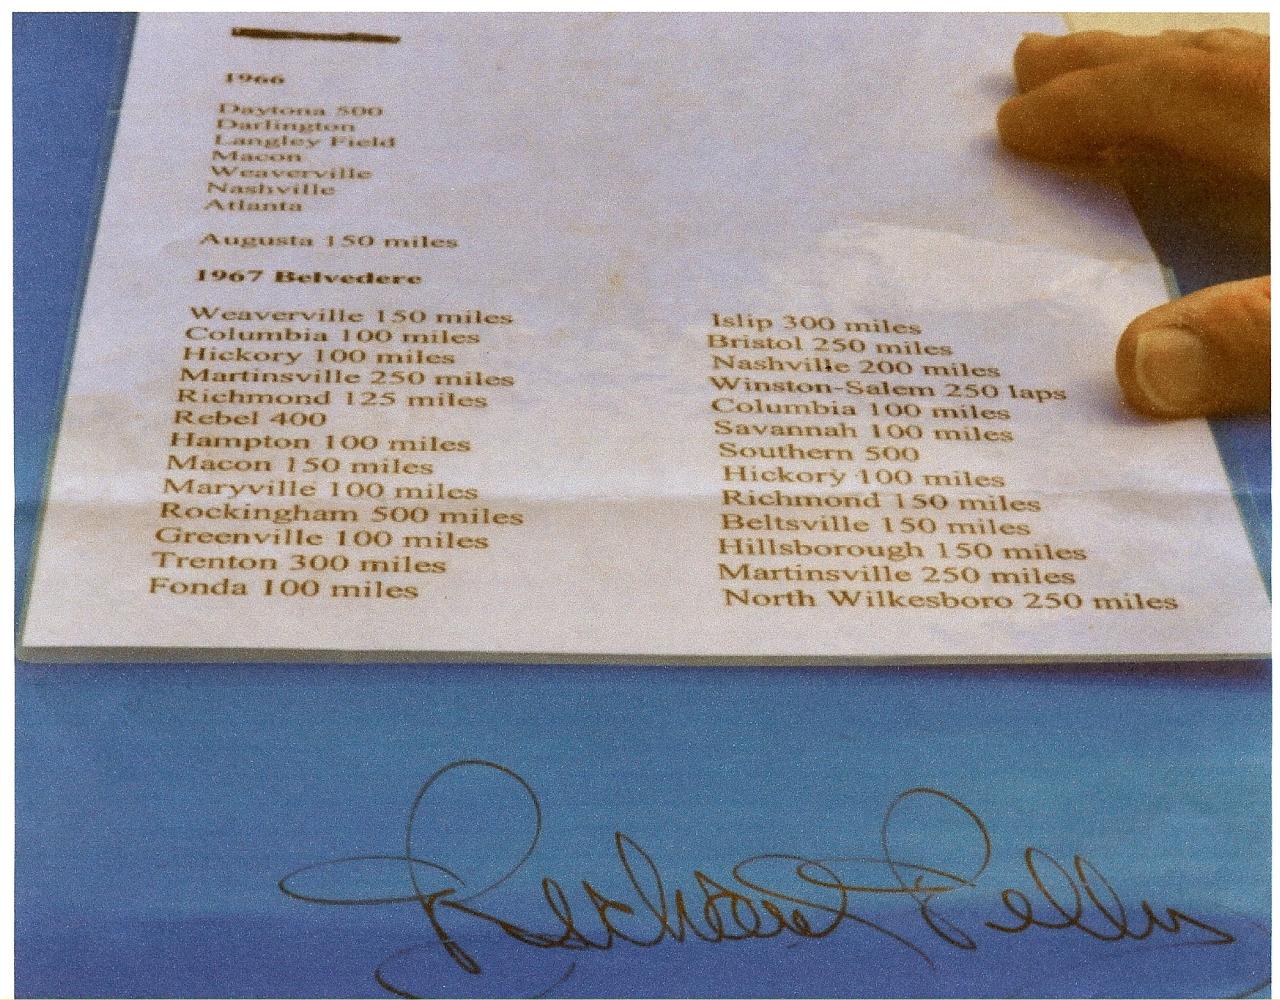 1966
Daytona 500
Darlington
Langley Field
Macon
Weaverville
Nashville
Atlanta
Augusta 150 miles
1967 Belvedere
Weaverville 150 miles
Columbia 100 miles
Hickory 100 miles
Martinsville 250 miles
Richmond 125 miles
Rebel 400
Hampton 100 miles
Macon 150 miles
Maryville 100 miles
Rockingham 500 miles
Greenville 100 miles
Trenton 300 miles
Fonda 100 miles
Islip 300 miles
Bristol 250 miles
Nashville 200 miles
Winston-Salem 250 laps
Columbia 100 miles
Savannah 100 miles
Southern 500
Hickory 100 miles
Richmond 150 miles
Beltsville 150 miles
Hillsborough 150 miles
Martinsville 250 miles
North Wilkesboro 250 miles
Richard Petty